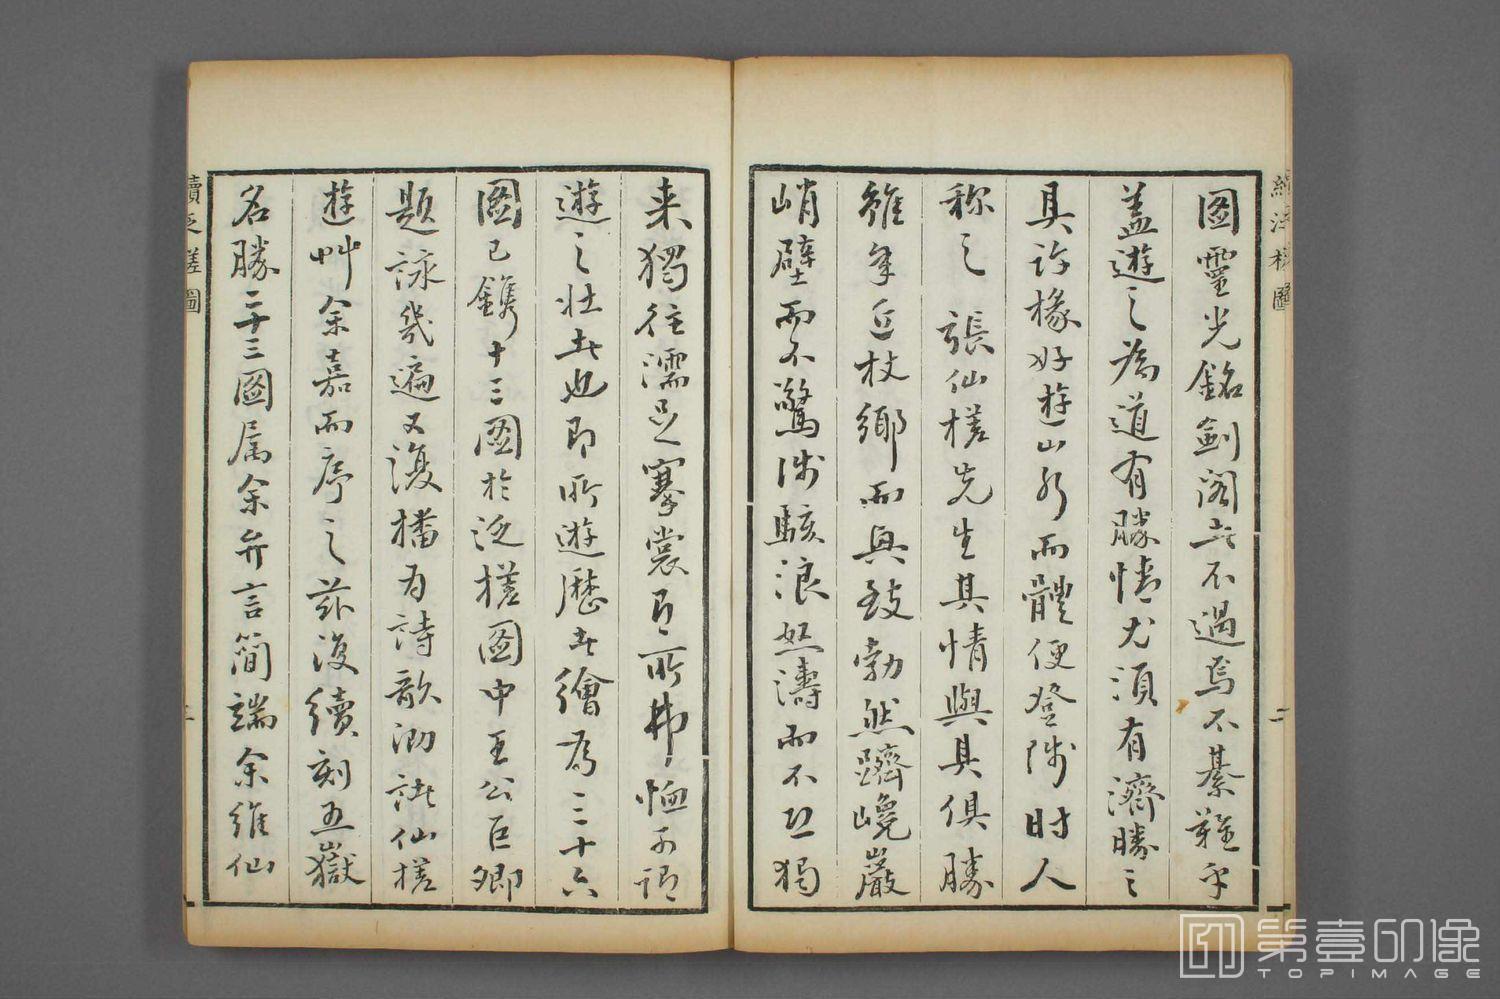 圖靈光銘劍閣者不過焉不綦難乎
蓋遊之為道有勝情尤須有濟勝之
具許掾好遊山水而體便登陟時人
稱之張仙槎先生具情與具俱勝
雖年近杖鄉而興致勃然躋巉巖
峭壁而不驚涉駭浪怒濤而不恐獨
来獨往濡足褰裳有所弗恤可謂
遊之壯者也即所遊歷者繪為三十六
圖已鐫十三圖於泛槎圖中王公巨卿
題詠幾遍又復播為詩歌泐諸仙槎
遊艸余嘉而序之茲復續刻五嶽
名勝二十三圖属余弁言簡端余維仙
續泛槎圖
二
續泛槎圖
TOPIMAGE
第壹印像